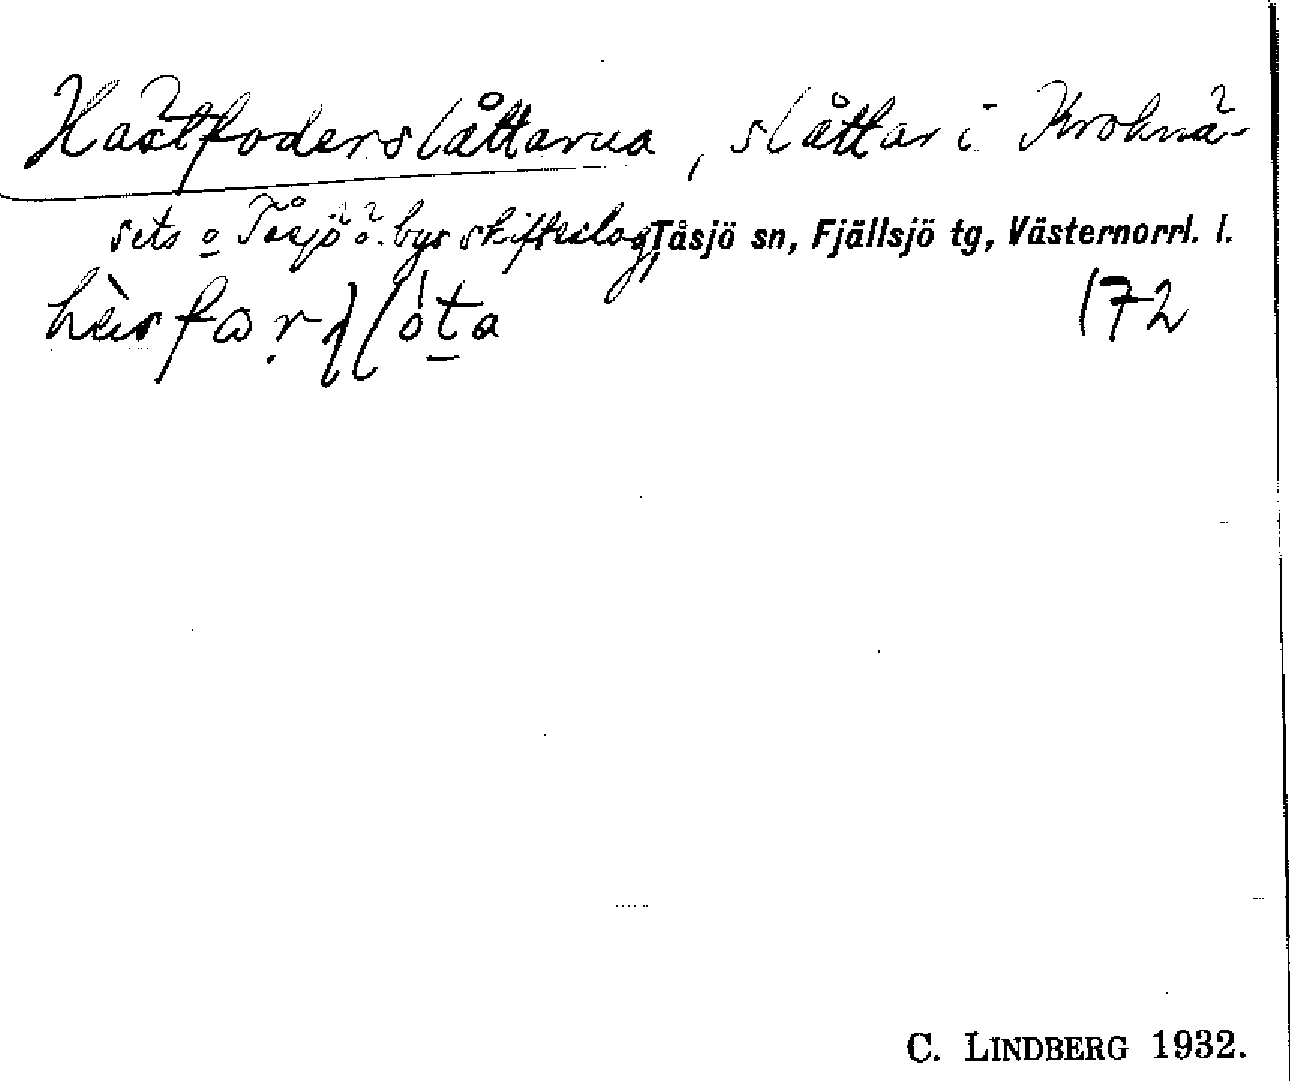 Hästfoderslåttarna, slåttar i Kroknä-
sets o Tåsjö ö. bys skifteslag, Tåsjö sn, Fjällsjö tg, Västernorrl. l.
172
C. LINDBERG 1932.